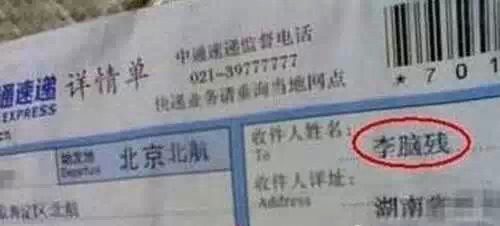 通速递 详情单
EXPRESS
中通速递监督电话
021-39777777
快递业务请垂询当地网点
*701
始发地 北京北航
Departure
收件人姓名: 李脑残
To
收件人详址:
Address
湖南
海淀区北航